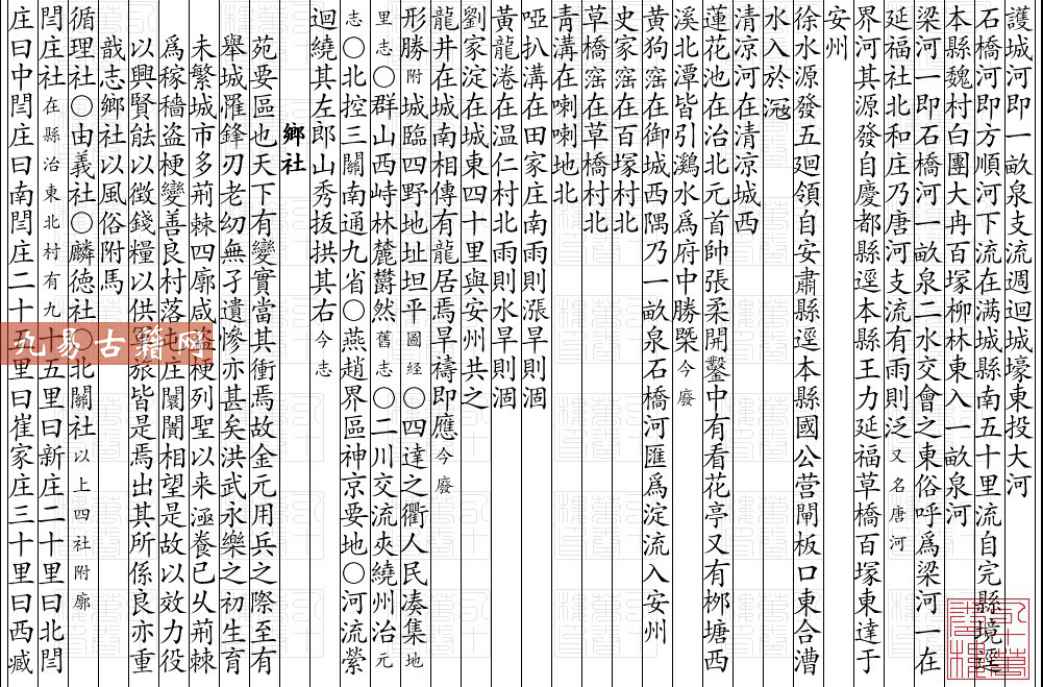 護城河即一畝泉支流週迴城壕東投大河
石橋河即方順河下流在满城縣南五十里流自完縣境逕
本縣魏村白團大冉百塚柳林東入一畝泉河
梁河一即石橋河一畝泉二水交會之東俗呼爲梁河一在
延福社北和庄乃唐河支流有雨則泛又名唐河
界河其源發自慶都縣逕本縣王力延福草橋百塚東達于
安州
徐水源發五迴領自安肅縣逕本縣國公营閘板口東合漕
水入於㓂
清凉河在清凉城西
蓮花池在治北元首帥張柔開鑿中有看花亭又有栁塘西
溪北潭皆引鷄水爲府中勝槩今廢
黄狗窑在御城西隅乃一畝泉石橋河匯爲淀流入安州
史家窑在百塚村北
草橋窑在草橋村北
青溝在喇喇地北
啞扒溝在田家庄南雨則漲旱則涸
黄龍淃在温仁村北雨則水旱則涸
劉家淀在城東四十里與安州共之
龍井在城南相傳有龍居焉旱禱即應今廢
形勝附城臨四野地址坦平圖经〇四達之衢人民湊集地
里志〇群山西峙林麓欝然舊志〇二川交流夾繞州治元
志〇北控三關南通九省〇燕趙界區神京要地〇河流縈
迴繞其左郎山秀㧞拱其右今志
鄉社
苑要區也天下有變實當其衝焉故金元用兵之際至有
舉城罹鋒刃老幼無孑遺慘亦甚矣洪武永樂之初生育
未繁城市多荊棘四廓咸盗梗列聖以来涵養已乆荊棘
爲稼穡盗梗變善良村落屯庄闤闠相望是故以效力役
以興賢能以徵錢糧以供軍旅皆是焉出其所係良亦重
哉志鄉社以風俗附焉
循理社〇由義社〇麟德社〇北關社以上四社附廓
閆庄社在縣治東北村有九十五里曰新庄二十里曰北閆
庄曰中閆庄曰南閆庄二十五里曰崔家庄三十里曰西臧
九易古籍网